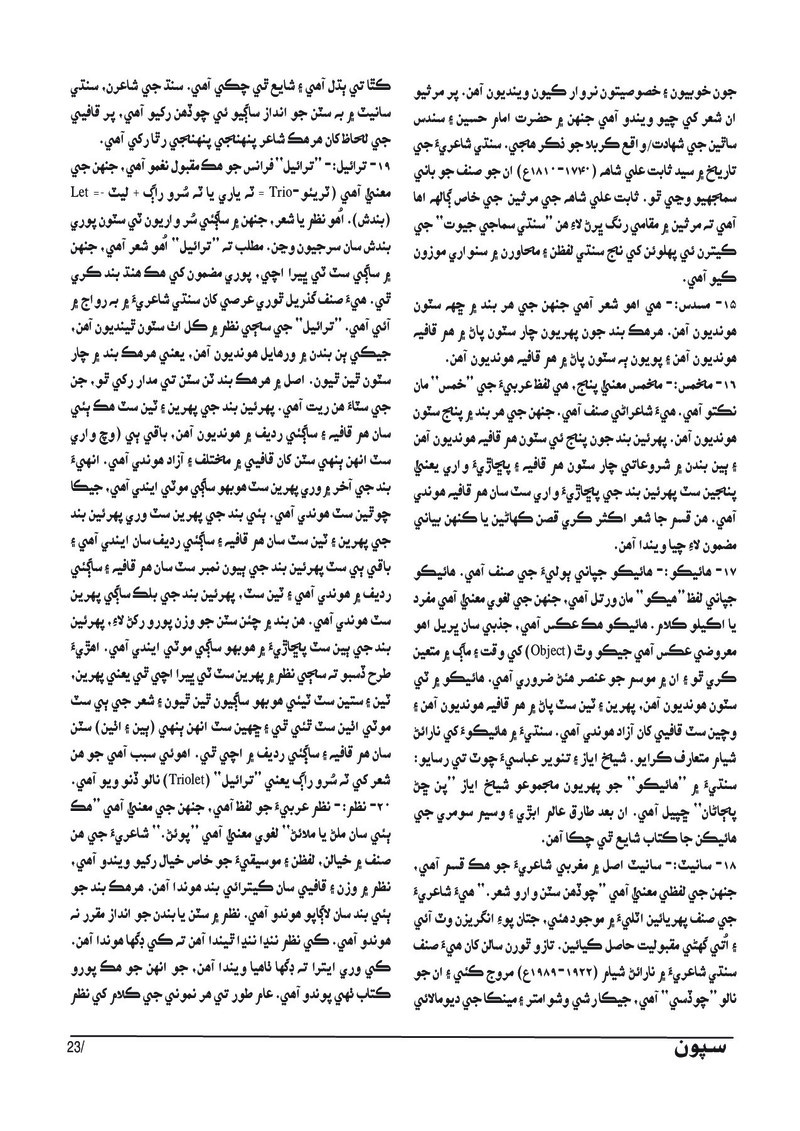 جون خوبيون ۽ خصوصيتون نروار ڪيون وينديون آهن. پر مرثيو
ان شعر کي چيو ويندو آهي جنهن ۾ حضرت امام حسين ۽ سندس
ساٿين جي شهادت/واقع ڪربلا جو ذڪر هجي. سنڌي شاعريءَ جي
تاريخ ۾ سيد ثابت علي شاهه (۱۷۴۰-۱۸۱۰ع) ان جو صنف جو باني
سمجهيو وڃي ٿو. ثابت علي شاهه جي مرثين جي خاص ڳالهه اها
آهي ته مرثين ۾ مقامي رنگ ڀرڻ لاءِ هن "سنڌي سماجي جيوت" جي
ڪيترن ئي پهلوئن کي نج سنڌي لفظن ۽ محاورن ۾ سنواري موزون
ڪيو آهي.
۱۵- مسدس:- هي اهو شعر آهي جنهن جي هر بند ۾ ڇهه سٽون
هونديون آهن. هرهڪ بند جون پهريون چار سٽون پاڻ ۾ هم قافيه
هونديون آهن ۽ پويون ٻه سٽون پاڻ ۾ هم قافيه هونديون آهن.
۱۶- مخمس:- مخمس معنيٰ پنج، هي لفظ عربيءَ جي "خمس" مان
نڪتو آهي. هيءَ شاعراڻي صنف آهي. جنهن جي هر بند ۾ پنج سٽون
هونديون آهن. پهرئين بند جون پنج ئي سٽون هم قافيه هونديون آهن
۽ ٻين بندن ۾ شروعاتي چار سٽون هم قافيه ۽ پڇاڙيءَ واري يعنيٰ
پنجين سٽ پهرئين بند جي پڇاڙيءَ واري سٽ سان هم قافيه هوندي
آهي. هن قسم جا شعر اڪثر ڪري قصن ڪهاڻين يا ڪنهن بياني
مضمون لاءِ چيا ويندا آهن.
۱۷- هائيڪو:- هائيڪو جپاني ٻوليءَ جي صنف آهي. هائيڪو
جپاني لفظ "هيڪو" مان ورتل آهي، جنهن جي لغوي معنيٰ آهي مفرد
يا اڪيلو ڪلام. هائيڪو هڪ عڪس آهي، جذبي سان ڀريل اهو
معروضي عڪس آهي جيڪو وٿ (Object) کي وقت ۽ ماڳ ۾ متعين
ڪري ٿو ۽ ان ۾ موسم جو عنصر هئڻ ضروري آهي. هائيڪو ۾ ٽي
سٽون هونديون آهن، پهرين ۽ ٽين سٽ پاڻ ۾ هم قافيه هونديون آهن ۽
وچين سٽ قافيي کان آزاد هوندي آهي. سنڌيءَ ۾ هائيڪوءَ کي نارائڻ
شيام متعارف ڪرايو. شيخ اياز ۽ تنوير عباسيءَ چوٽ تي رسايو:
سنڌيءَ ۾ "هائيڪو" جو پهريون مجموعو شيخ اياز "پن ڇڻ
پڄاڻان" ڇپيل آهي. ان بعد طارق عالم ابڙي ۽ وسيم سومري جي
هائيڪن جا ڪتاب شايع ٿي چڪا آهن.
۱۸- سانيٽ:- سانيٽ اصل ۾ مغربي شاعريءَ جو هڪ قسم آهي،
جنهن جي لفظي معنيٰ آهي "چوڏهن سٽن وارو شعر." هيءَ شاعريءَ
جي صنف پهريائين اٽليءَ ۾ موجود هئي، جتان پوءِ انگريزن وٽ آئي
۽ اُتي گهڻي مقبوليت حاصل ڪيائين. تازو ٿورن سالن کان هيءَ صنف
سنڌي شاعريءَ ۾ نارائڻ شيام (۱۹۲۲-۱۹۸۹ع) مروج ڪئي ۽ ان جو
نالو "چوڏسي" آهي، جيڪا رشي وشوامتر ۽ مينڪا جي ديومالائي
ڪٿا تي ٻڌل آهي ۽ شايع ٿي چڪي آهي. سنڌ جي شاعرن، سنڌي
سانيٽ ۾ به سٽن جو انداز ساڳيو ئي چوڏهن رکيو آهي، پر قافيي
جي لحاظ کان هرهڪ شاعر پنهنجي پنهنجي رٿا رکي آهي.
۱۹- ترائيل:- "ترائيل" فرانس جو هڪ مقبول نغمو آهي، جنهن جي
معنيٰ آهي (ٽرينو-Trio = ٽه ياري يا ٽه سُرو راڳ + ليٽ -= Let
(بندش). اُهو نظم يا شعر، جنهن ۾ ساڳئي سُر واريون ٽي سٽون پوري
بندش سان سرجيون وڃن. مطلب ته "ترائيل" اُهو شعر آهي، جنهن
۾ ساڳي سٽ ٽي ڀيرا اچي، پوري مضمون کي هڪ هنڌ بند ڪري
ٿي. هيءَ صنف گذريل ٿوري عرصي کان سنڌي شاعريءَ ۾ به رواج ۾
آئي آهي. "ترائيل" جي سڄي نظم ۾ ڪل اٺ سٽون ٿينديون آهن،
جيڪي ٻن بندن ۾ ورهايل هونديون آهن، يعني هرهڪ بند ۾ چار
سٽون ٿين ٿيون. اصل ۾ هرهڪ بند ٽن سٽن تي مدار رکي ٿو، جن
جي سٽاءَ هن ريت آهي. پهرئين بند جي پهرين ۽ ٽين سٽ هڪ ٻئي
سان هم قافيه ۽ ساڳئي رديف ۾ هونديون آهن، باقي ٻي (وچ واري
سٽ انهن ٻنهي سٽن کان قافيي ۾ مختلف ۽ آزاد هوندي آهي. انهيءَ
بند جي آخر ۾ وري پهرين سٽ هوبهو ساڳي موٽي ايندي آهي، جيڪا
چوٿين سٽ هوندي آهي. ٻئي بند جي پهرين سٽ وري پهرئين بند
جي پهرين ۽ ٽين سٽ سان هم قافيه ۽ ساڳئي رديف سان ايندي آهي ۽
باقي ٻي سٽ پهرئين بند جي ٻيون نمبر سٽ سان هم قافيه ۽ ساڳئي
رديف ۾ هوندي آهي ۽ ٽين سٽ، پهرئين بند جي بلڪ ساڳي پهرين
سٽ هوندي آهي. هن بند ۾ چئن سٽن جو وزن پورو رکڻ لاءِ، پهرئين
بند جي ٻين سٽ پڇاڙيءَ ۾ هوبهو ساڳي موٽي ايندي آهي. اهڙيءَ
طرح ڏسبو ته سڄي نظم ۾ پهرين سٽ ٽي ڀيرا اچي ٿي يعني پهرين،
ٽين ۽ ستين سٽ ٽيئي هوبهو ساڳيون ٿين ٿيون ۽ شعر جي ٻي سٽ
موٽي اٺين سٽ ٿئي ٿي ۽ ڇهين سٽ انهن ٻنهي (ٻين ۽ اٺين) سٽن
سان هم قافيه ۽ ساڳئي رديف ۾ اچي ٿي. اهوئي سبب آهي جو هن
شعر کي ٽه سُرو راڳ يعني "ترائيل" (Triolet) نالو ڏنو ويو آهي.
۲۰- نظم:- نظم عربيءَ جو لفظ آهي، جنهن جي معنيٰ آهي "هڪ
ٻئي سان ملڻ يا ملائڻ" لغوي معنيٰ آهي "پوئڻ." شاعريءَ جي هن
صنف ۾ خيالن، لفظن ۽ موسيقيءَ جو خاص خيال رکيو ويندو آهي،
نظم ۾ وزن ۽ قافيي سان ڪيترائي بند هوندا آهن. هرهڪ بند جو
ٻئي بند سان لاڳاپو هوندو آهي. نظم ۾ سٽن يا بندن جو انداز مقرر نه
هوندو آهي. ڪي نظم ننڍا ننڍا ٿيندا آهن ته ڪي ڊگها هوندا آهن.
ڪي وري ايترا ته ڊگها ٺاهيا ويندا آهن، جو انهن جو هڪ پورو
ڪتاب ٺهي پوندو آهي. عام طور تي هر نموني جي ڪلام کي نظم
سپون
23/